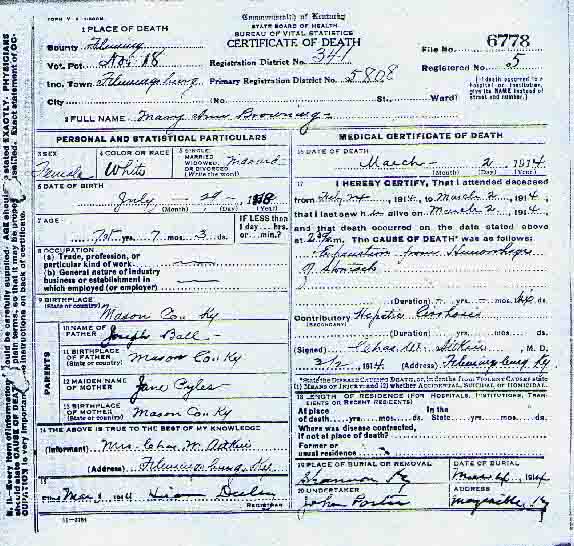 1 PLACE OF DEATH
Commonwealth of Kentucky
STATE BOARD OF HEALTH
BUREAU OF VITAL STATISTICS
CERTIFICATE OF DEATH
County Fleming
Vot. Pct. No. 18
Registration District No. 341
File No. 6778
Registered No. 5
Inc. Town Flemingsburg
Primary Registration District No. 5808
City (No. St., Ward)
(If death occurred in a hospital or institution, give its NAME instead of street and number.)
2 FULL NAME Mary Ann Browning
PERSONAL AND STATISTICAL PARTICULARS
3 SEX
Female
4 COLOR OR RACE
White
5 SINGLE, MARRIED, WIDOWED, OR DIVORCED (Write the word)
6 DATE OF BIRTH
July 29
(Month) (Day) (Year)
7 AGE
yrs. 7 mos. 3 ds.
IF LESS than 1 day, hrs. or min.?
8 OCCUPATION
(a) Trade, profession, or particular kind of work
(b) General nature of industry business or establishment in which employed (or employer)
9 BIRTHPLACE
(State or country)
Mason Co Ky
PARENTS
10 NAME OF FATHER
Joseph Ball
11 BIRTHPLACE OF FATHER
(State or country)
Mason Co Ky
12 MAIDEN NAME OF MOTHER
Jane Cyles
13 BIRTHPLACE OF MOTHER
(State or country)
Mason Co Ky
14 THE ABOVE IS TRUE TO THE BEST OF MY KNOWLEDGE
(Informant) Mrs. Chas. W. Aitkin
(Address) Flemingsburg, Ky
15
Filed Mar 1914
REGISTRAR
11-3184
MEDICAL CERTIFICATE OF DEATH
16 DATE OF DEATH
March 2, 1914
(Month) (Day) (Year)
17 I HEREBY CERTIFY, That I attended deceased
from Feb 24, 1914, to March 2, 1914,
that I last saw her alive on March 2, 1914,
and that death occurred on the date stated above
at m. The CAUSE OF DEATH* was as follows:
Exhaustion from Hemorrhage
of Stomach
(Duration) yrs. mos. ds.
Contributory Hepatic Cirrhosis
(SECONDARY)
(Duration) yrs. mos. ds.
(Signed) Chas. W. Aitkin, M. D.
3/2, 1914. (Address) Flemingsburg Ky
*State the DISEASE CAUSING DEATH, or, in deaths from VIOLENT CAUSES state (1) MEANS OF INJURY; and (2) whether ACCIDENTAL, SUICIDAL or HOMICIDAL.
18 LENGTH OF RESIDENCE (FOR HOSPITALS, INSTITUTIONS, TRANSIENTS OR RECENT RESIDENTS)
At place of death yrs. mos. ds. In the State yrs. mos. ds.
Where was disease contracted, if not at place of death?
Former or usual residence
19 PLACE OF BURIAL OR REMOVAL
DATE OF BURIAL
1914
20 UNDERTAKER
John Porter
ADDRESS
Maysville Ky